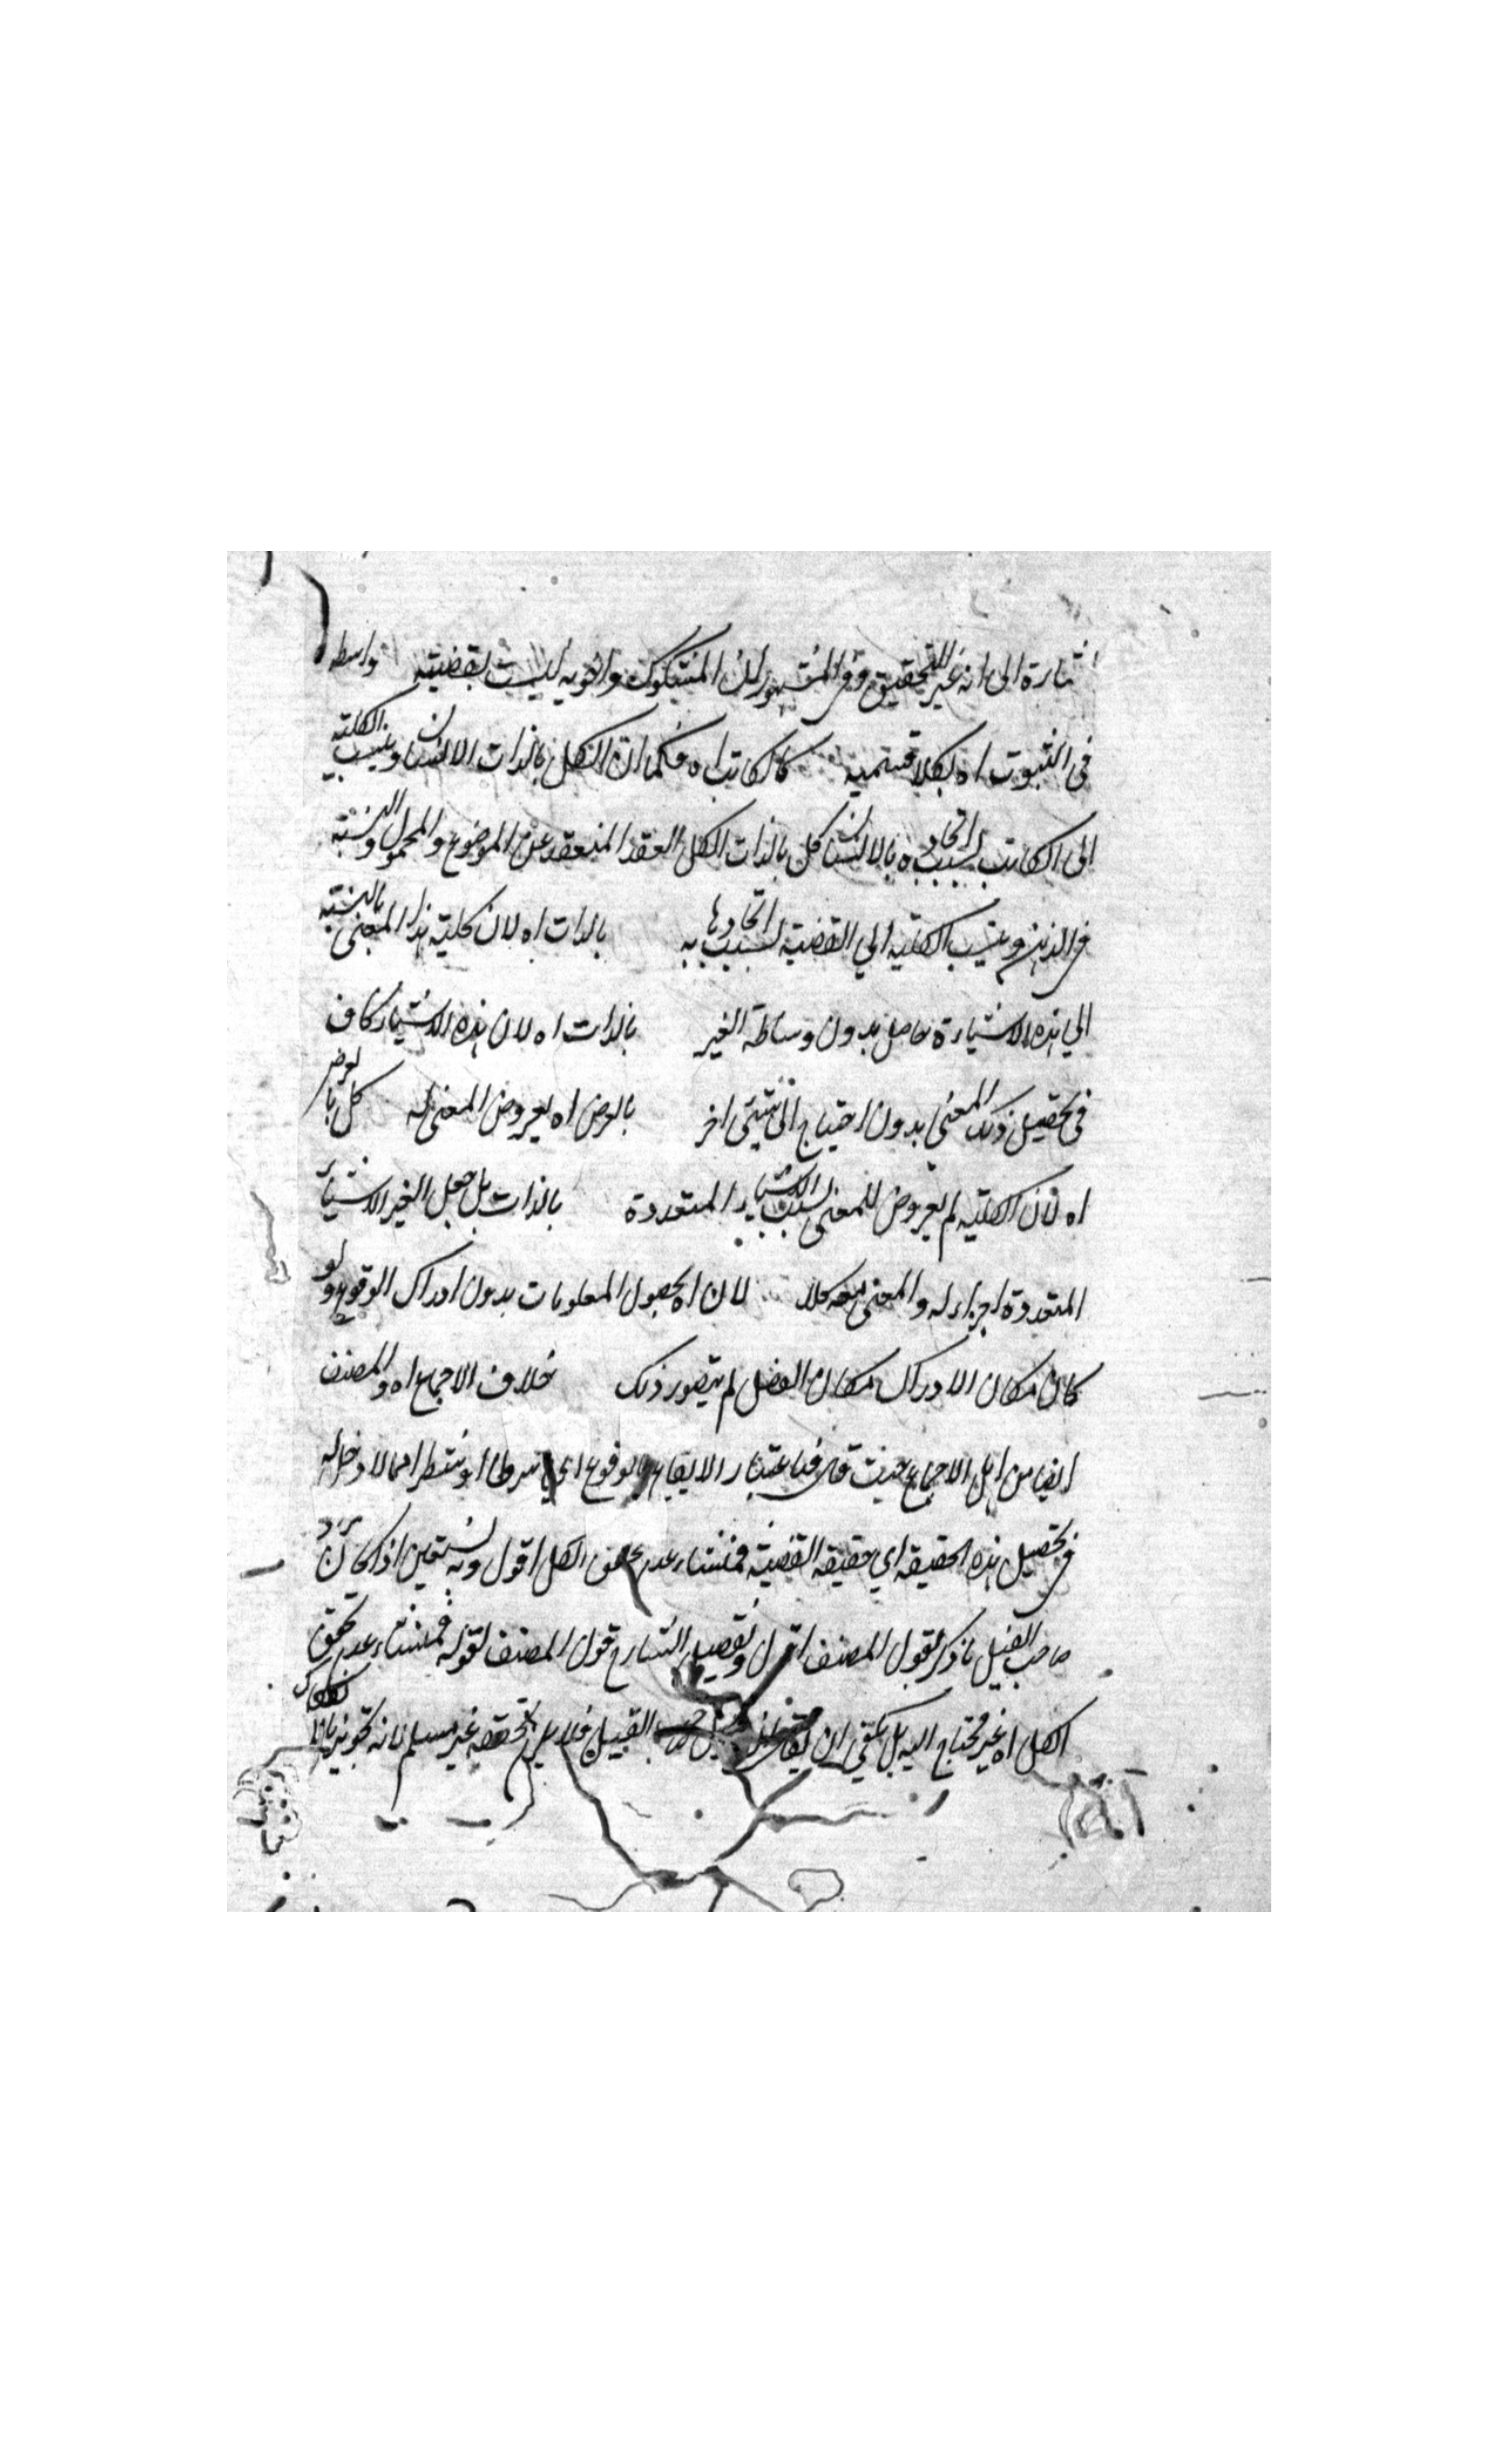 اشارة الى انه غير التحقيق وفى المشهور ان المشكوك والقوية ليست بقضية واسطه
فى الثبوت اه بكلا قسميه كالكاتب اه فكما ان الكل بالذات الانسان وينسب الكلية
الى الكاتب بسبب اتحاده بالانسان كل بالذات الكل العقد المنعقد عن الموضوع والمحمول والنسبة
فى الذهن وينسب الكلية الي القضية بسبب اتحادها به بالذات اه لان كلية هذا المعنى بالنسبة
الي هذه الاشياء حاصل بدون وساطة الغير بالذات اه لان هذه الاشياء كاف
فى تحصيل ذلك المعنى بدون احتياج الى شيئ اخر بالعرض اه بعروض المعنى له كل بالعرض
اه لان الكلية لم يعروض للمعنى بسبب الاشياء المتعددة بالذات بل جعل الغير الاشياء
المتعددة اجزاء له والمعنى معه كلا لان اه بحصول المعلومات بدون ادراك الوقوع ولو
كان مكان الادراك مكان الفضل لم يتصور ذلك خلاف الاجماع اه والمصنف
ايضا من اهل الاجماع حيث قال فاعتبار الايقاع والوقوع اى شرطا او شطرا مما لا دخل له
فى تحصيل هذه الحقيقه اي حقيقة القضية فمنشاء عدم تحقق الكل اقول ونستعين اذا كان مراد
صاحب القيل ما ذكر بقول المصنف اقول وتفصيل الشارح قول المصنف بقوله فمنشاء عدم تحقق
الكل اه غير محتاج اليه بل يكفي ان يقال صاحب القيل فلا تحققه غير مسلم لانه تجويز